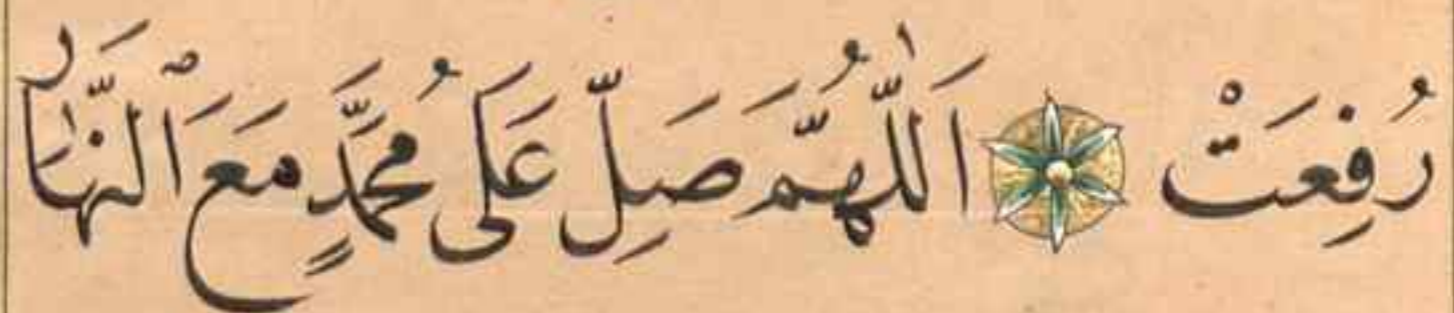 رُفِعَتْ ۞ اَللّٰهُمَّ صَلِّ عَلَى مُحَمَّدٍ مَعَ ٱلنَّهَارِ